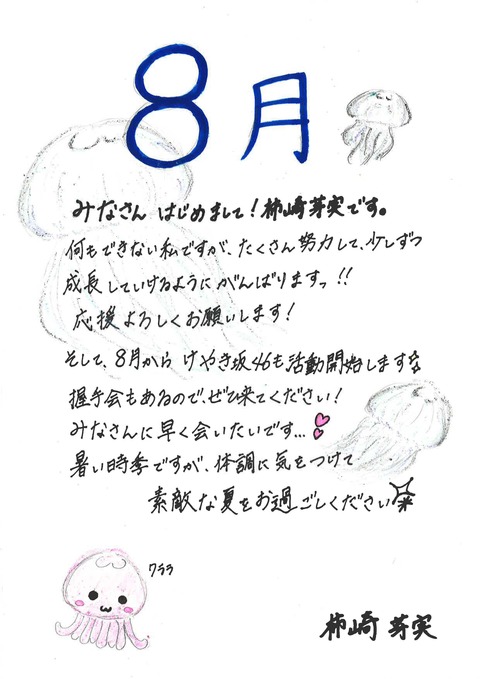 8月
みなさん はじめまして!柿崎芽実です。
何もできない私ですが、たくさん努力して、少しずつ
成長していけるようにがんばりますっ!!
応援よろしくお願いします!
そして、8月から けやき坂46も活動開始します
握手会もあるので、ぜひ来てください!
みなさんに早く会いたいです…
暑い時季ですが、体調に気をつけて
素敵な夏をお過ごしください
クララ
柿崎 芽実